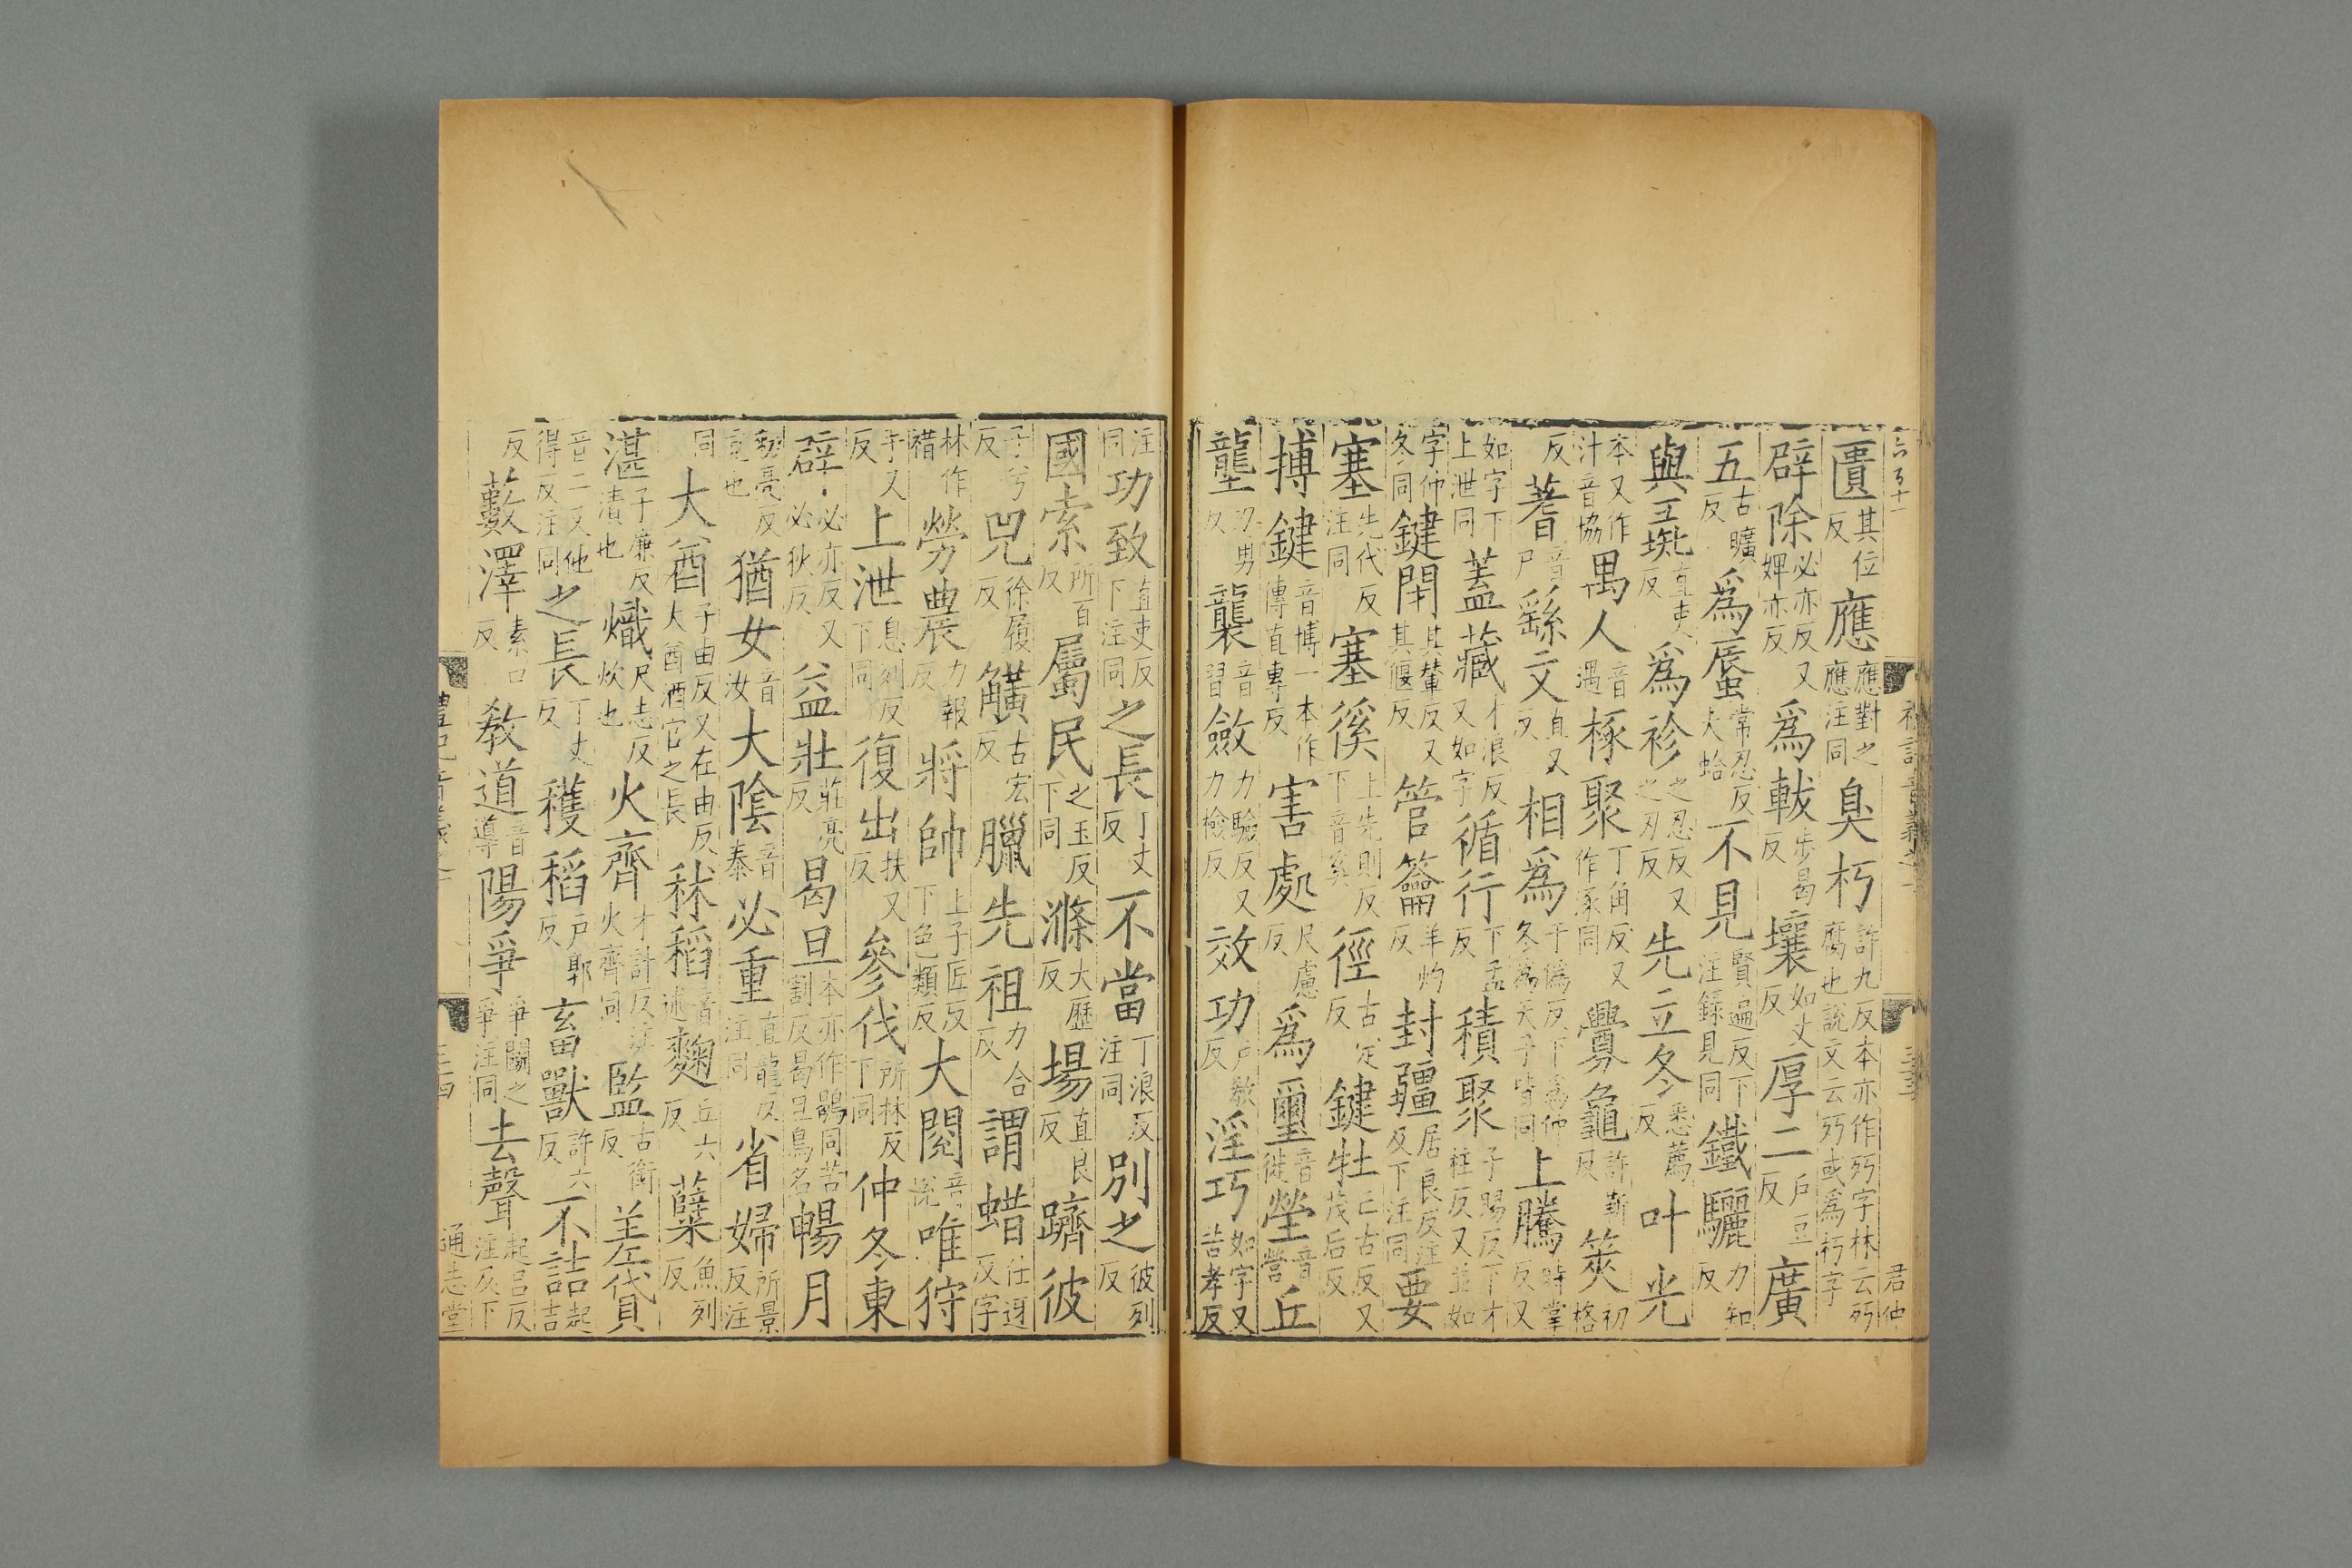 匱其位反應應對之應注同臭朽許九反本亦作㱙字林云㱙腐也說文云㱙或爲朽字
辟除必亦反又婢亦反爲軷步曷反壤如丈反厚二戶豆反廣
五古曠反爲蜃常忍反大蛤不見賢遍反下注錄見同鐵驪力知反
與直吏反爲袗之忍反又之刃反先立冬悉薦反叶光
本又作汁音協禺人音遇椓聚丁角反又作涿同釁龜許靳反筴初格
反蓍音尸繇文直又反相爲于僞反下爲仲冬爲天子皆同上騰時掌反又
如字下上泄同蓋藏才浪反又如字循行下孟反積聚子賜反下才柱反又並如
字仲冬同鍵閉其輦反又其偃反管籥羊灼反封疆居良反注及下注同要
塞先代反注同塞徯上先則反下音奚徑古定反鍵牡亡古反又茂后反
搏鍵音博一本作傳直專反害處尺慮反爲璽音徙塋音營丘
壟力勇反襲音習斂力驗反又力檢反效功戶教反淫巧如字又苦孝反
注同功致直吏反下注同之長丁丈反不當丁浪反注同別之彼列反
國索所百反屬民之玉反下同滌大歷反場直良反躋彼
子兮反兕徐履反觵古宏反臘先祖力合反謂蜡仕迓反字
林作䄍勞農力報反將帥上子匠反下色類反大閱音悅唯狩
手又反上泄息列反下同復出扶又反參伐所林反下同仲冬東
辟必亦反又必狄反益壯莊亮反曷旦本亦作鶡同苦割反曷旦鳥名暢月
猶女音汝大陰音泰必重直龍反注同省婦所景反注
同大酋子由反又在由反大酋酒官之長秫稻音述麴丘六反糱魚列反
湛子廉反漬也熾尺志反炊也火齊才計反注火齊同監古銜反差貸
音二又他得反注同之長丁丈反穫稻戶郭反畜獸許六反不詰起吉
反藪澤素口反教道音導陽爭爭鬭之爭注同去聲起呂反注及下
通志堂